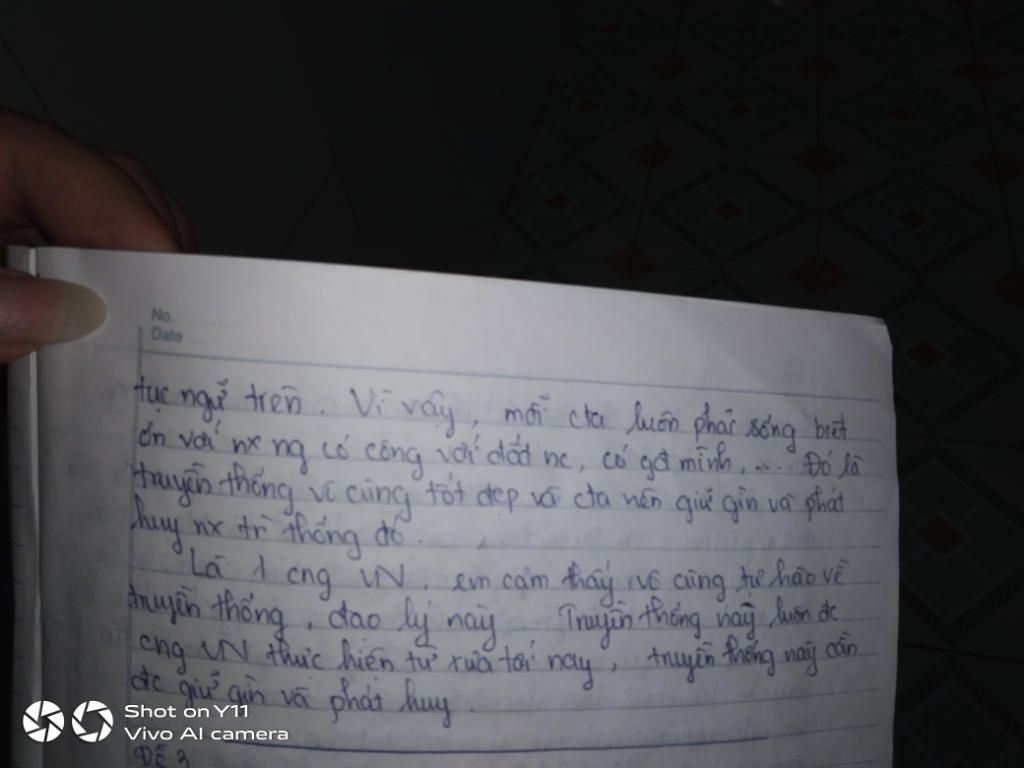 No. ........
Date
tục ngữ trên. Vì vậy, mỗi cta luôn phải sống biết
ơn với nx ng có công với đất nc, có gđ mình, .... Đó là
truyền thống vì cùng tốt đẹp và cta nên giữ gìn và phát
huy nx tr` thống đó.
Là 1 cng VN, em cảm thấy vô cùng tự hào về
truyền thống, đạo lý này Truyền thống này luôn đc
cng VN thực hiện từ xưa tới nay, truyền thống này cần
đc giữ gìn và phát huy.
ĐỀ 3
Shot on Y11
Vivo AI camera